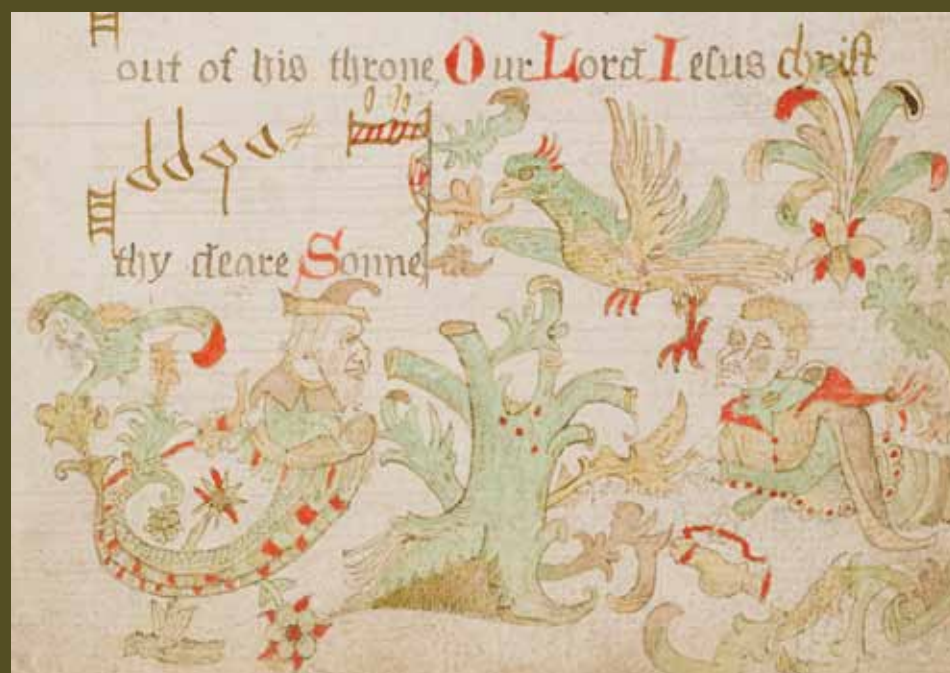 out of his throne Our Lord Iesus christ
thy deare Sonne